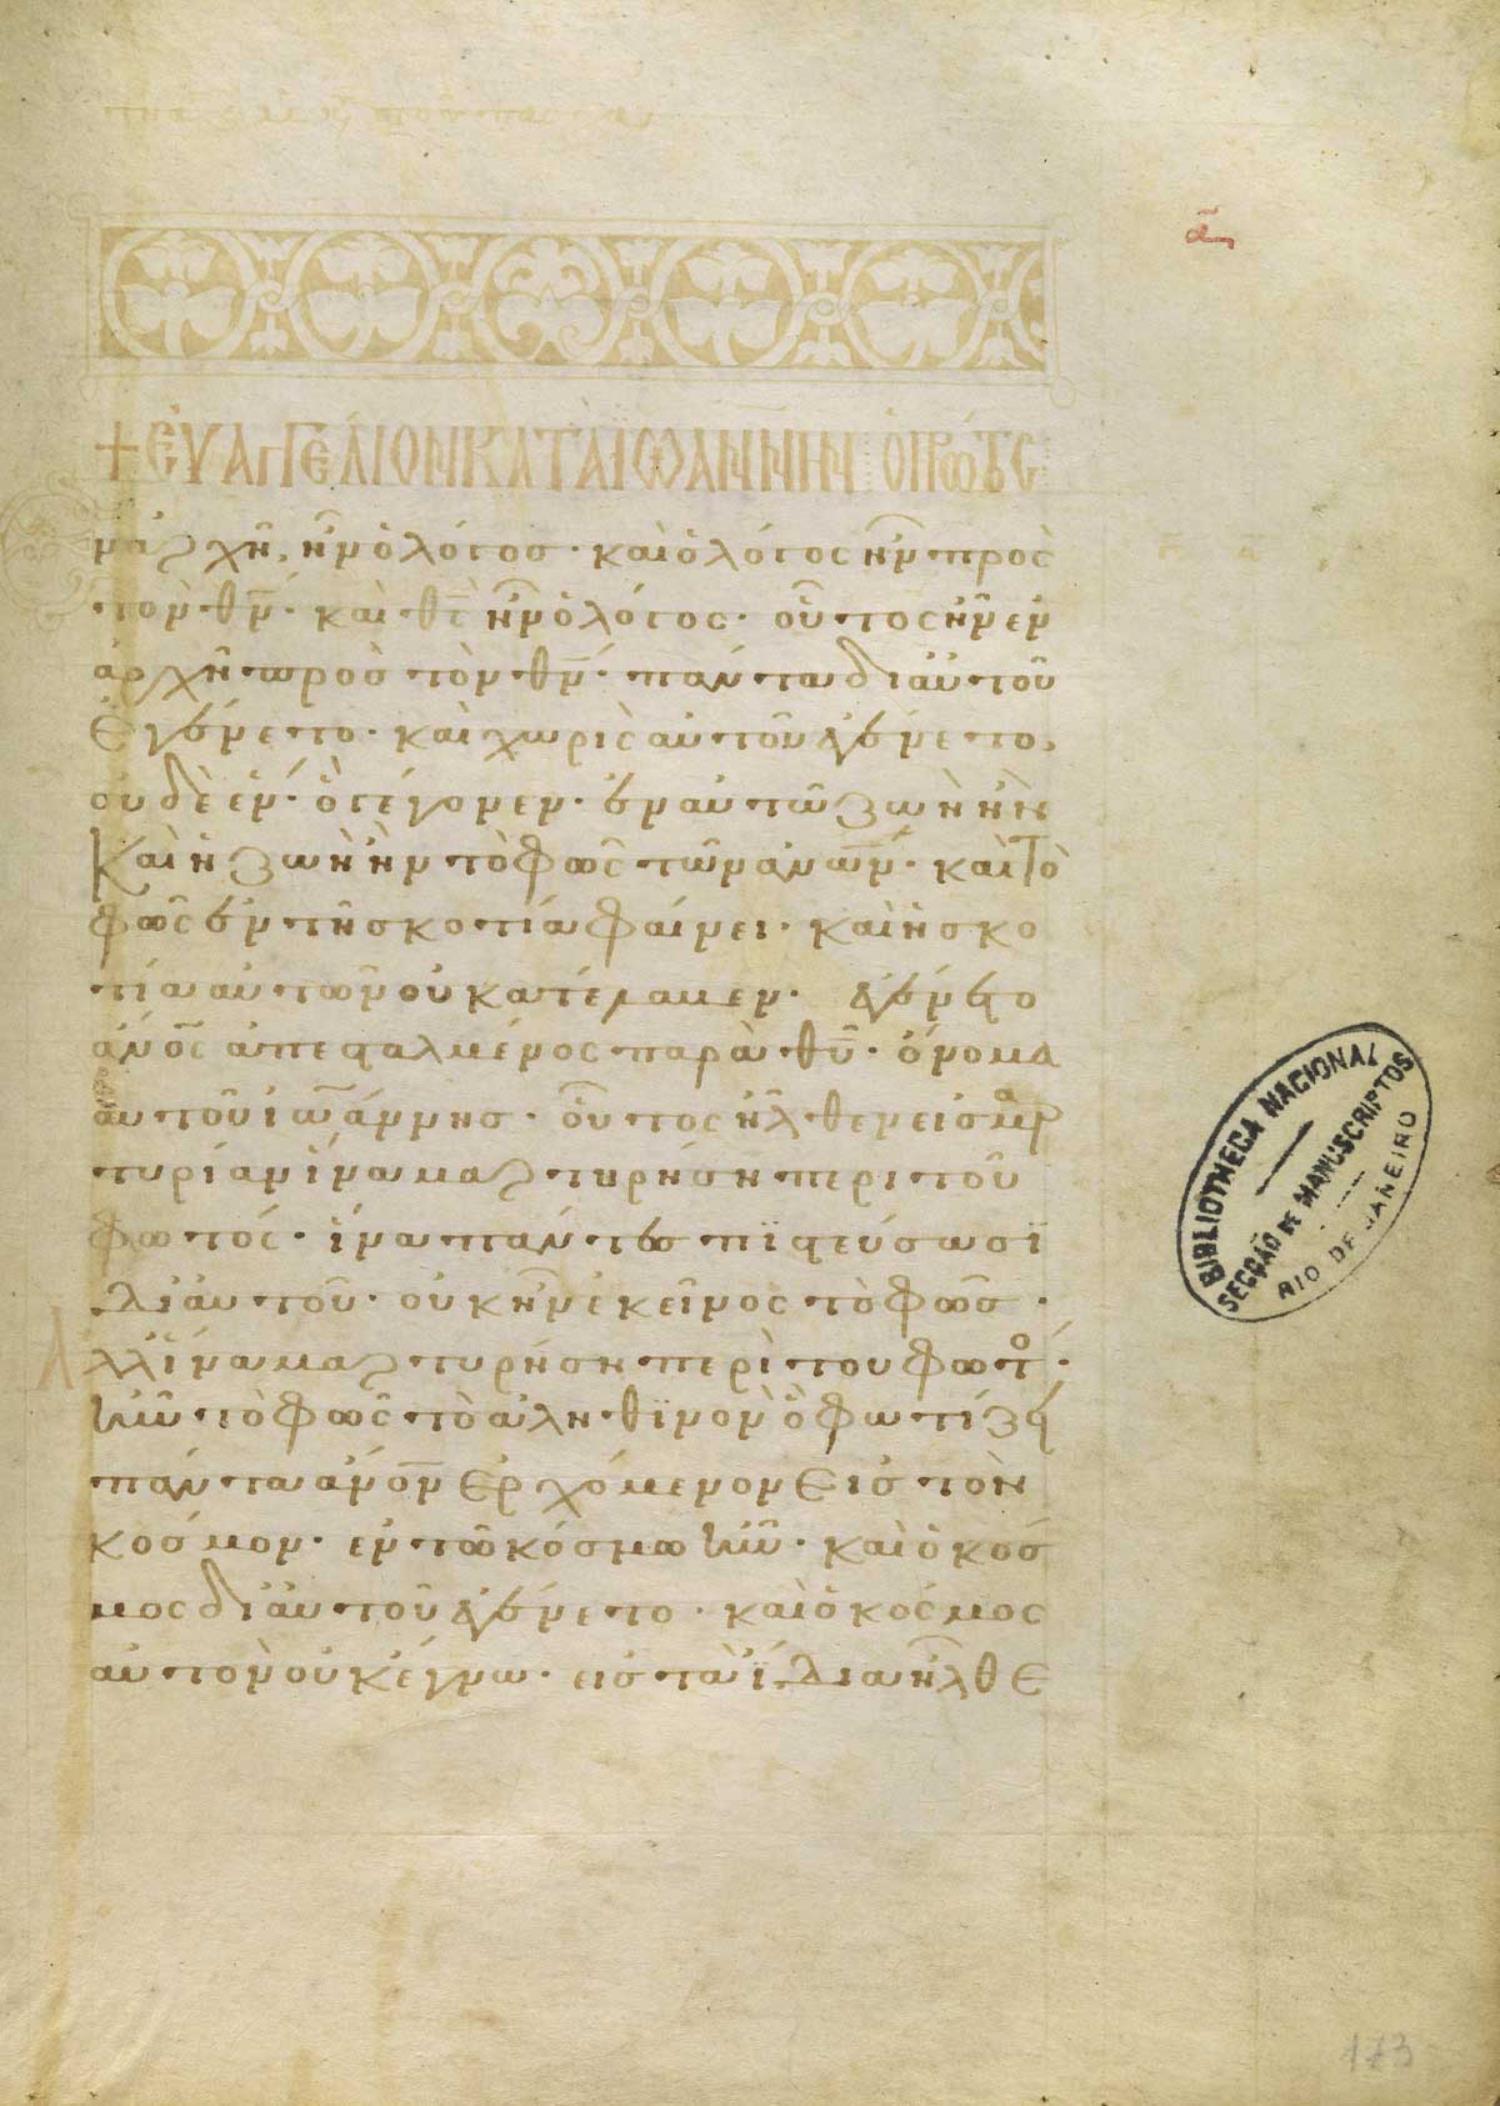 ᾱ
+ ἘΥΑΓΓΈΛΙΟΝ ΚΑΤΑ ἸΩΆΝΝΗΝ
ν ἀρχῆ, ἦν ὁ λόγοσ · καὶ ὁ λόγος ἦν πρὸς
τὸν θν̅ · καὶ θς̅ ἦν ὁ λόγος · οὗτος ἦν εν
ἀρχῆ πρὸσ τὸν θν̅ · πάντα δι ἀυτοῦ
ἐγένετο · καὶ χωρὶς αὐτοῦ ἐγένετο,
οὐδὲ ἑν · ὃ γέγονεν · ἐν αὐτῶ ζωὴ ἦν
Καὶ ἡ ζωὴ ἦν τὸ φῶς τῶν ἀνων̅ · καὶ τὸ
φῶς ἐν τῆ σκοτία φαίνει · καὶ ἡ σκο
τία αὐτῶν οὐ κατέλαμεν · ἐγένετο
ἀνος̅ ἀπεσταλμένος παρὰ θυ̅ · ὄνομα
αὐτοῦ ἰωάννησ · οὗτος ἦλθεν εἰσ μαρ
τυρίαν ἵνα μαρτυρήση περι τοῦ
φωτός · ἵνα πάντες πιστεύσωσι
δι ἀυτοῦ · οὐκ ἦν ἐκεῖνος τὸ φῶσ ·
Ἀ
λλ ἵνα μαρτυρήση περὶ του φωτο ·
ἦν τὸ φῶς τὸ ἀληθινον ὃ φωτίζει
πάντα ἀνον̅ ἐρχόμενον εἰσ τὸν
κόσμον · εν τῶ κόσμω ἦν · καὶ ὁ κόσ
μος δι ἀυτοῦ ἐγένετο · καὶ ὁ κόσμος
αὐτον οὐκ ἔγνω · εἰσ τὰ ἴδια ἦλθε
BIBLIOTHECA NACIONAL
SECÇÃO DE MANUSCRIPTOS
RIO DE JANEIRO
173